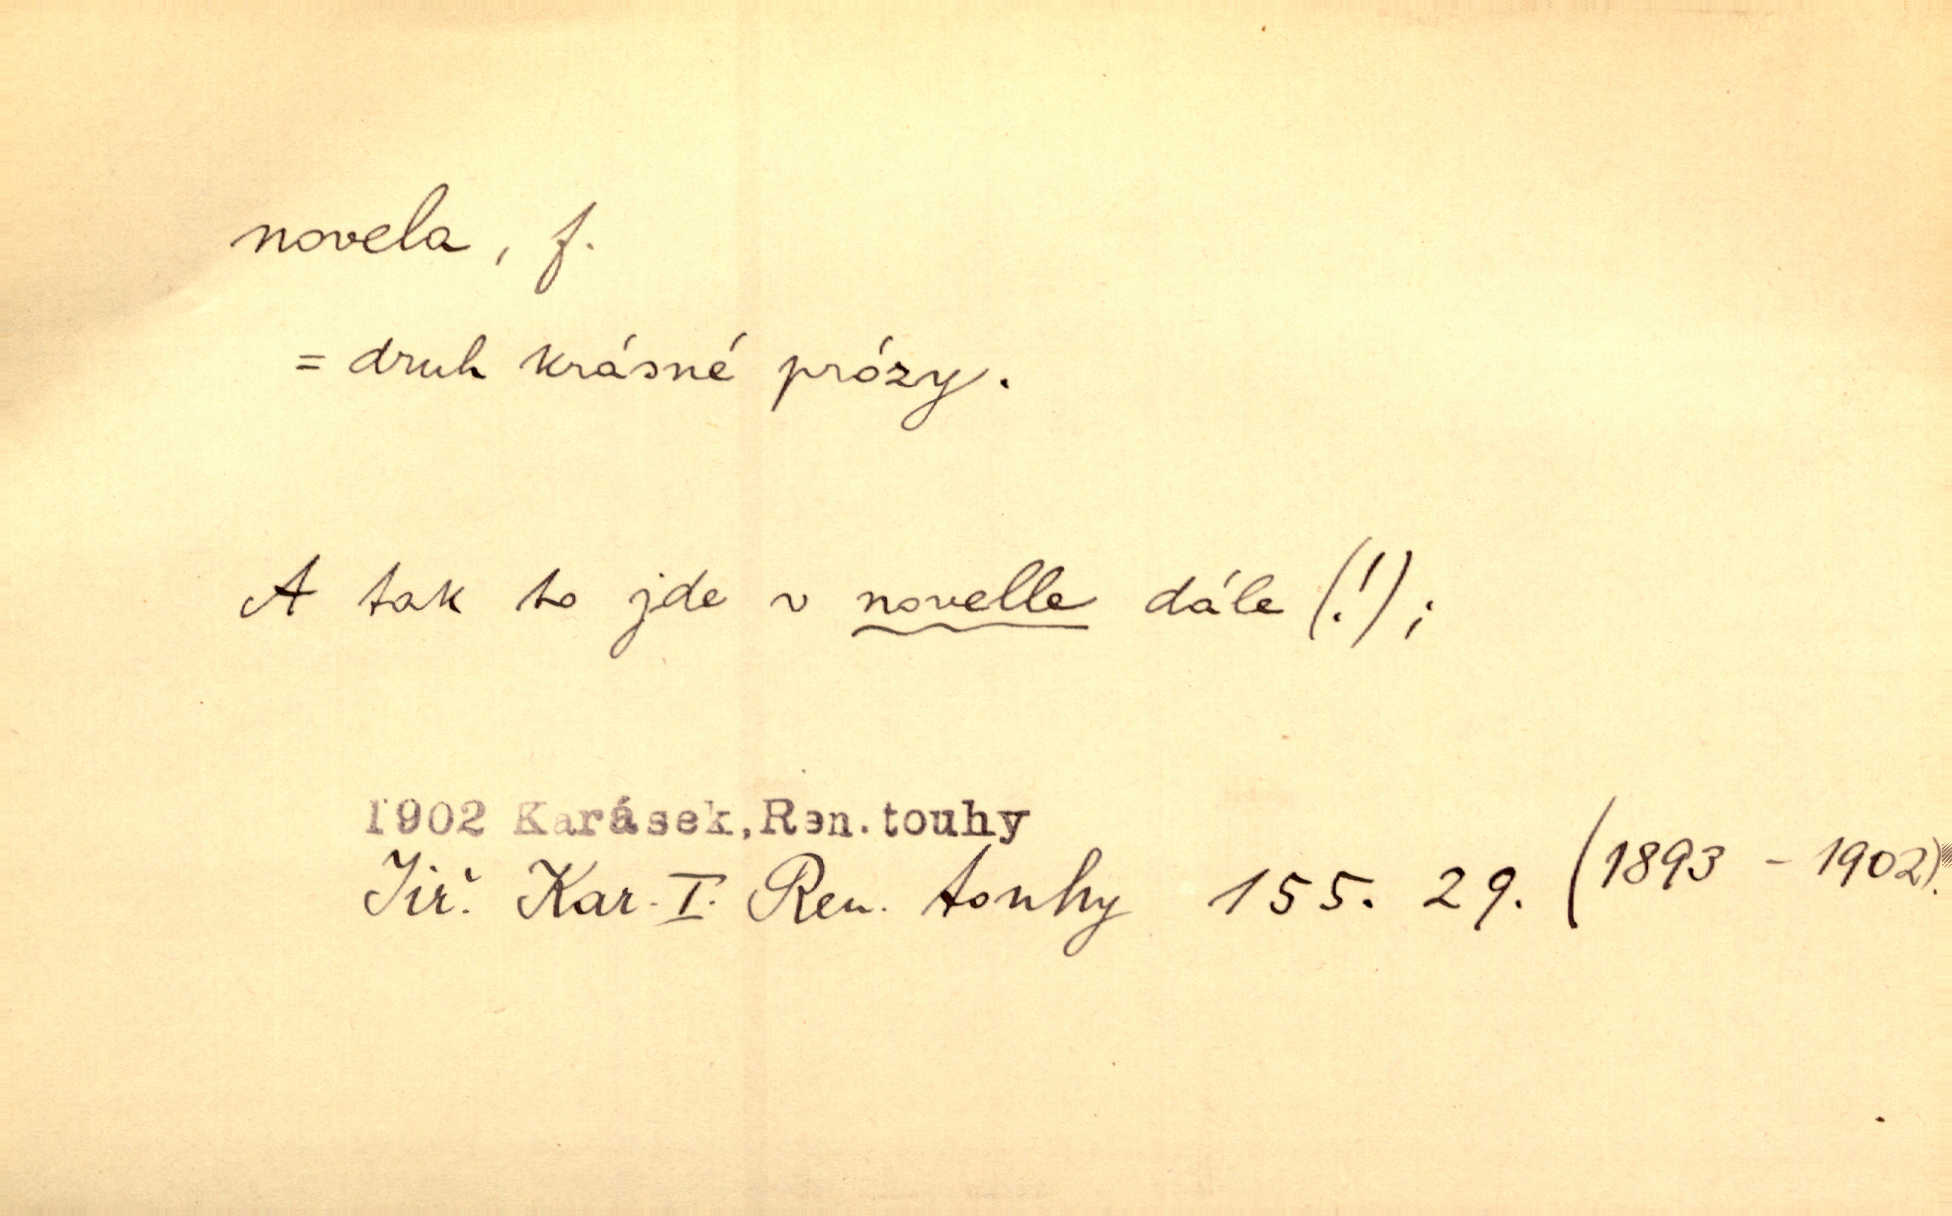 novela, f.
= druh krásné prózy.
A tak to jde v novelle dále (!);
1902 Karásek,Ren.touhy
Jiř. Kar. I. Ren. touhy 155. 29. (1893 - 1902).